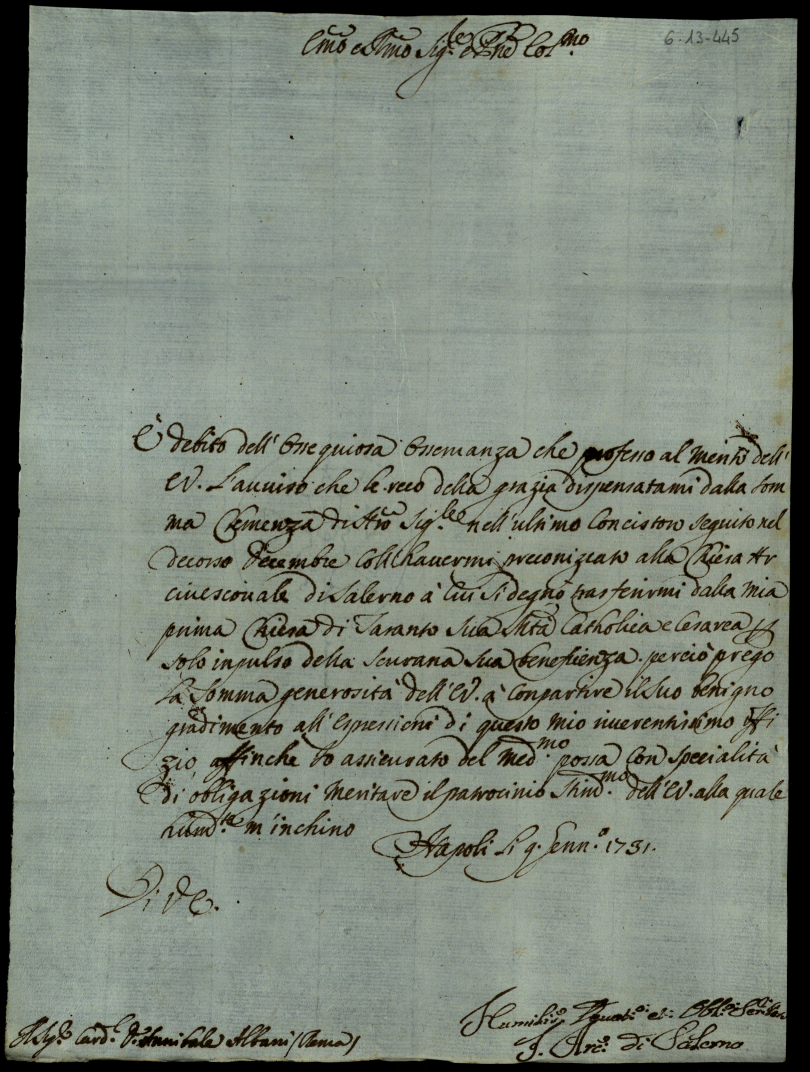 6-13-445
Emo e Rmo Sig.re e Pne Col.mo
È debito dell' Ossequiosa Osservanza che professo al Merito dell'
EV. L'auuiso che le reco della grazia dispensatami dalla Som
ma Clemenza di Nro Sig.re nell'ultimo Concistoro seguito nel
decorso Decembre coll'hauermi preconizzato alla Chiesa Ar
ciuescouale di Salerno à cui si degnò trasferirmi dalla mia
prima Chiesa di Taranto Sua Mtà Catholica e Cesarea
solo inpulso della Sourana Sua beneficenza. perciò prego
la Somma generosità dell'EV. à Conpartire il Suo benigno
gradimento all'Espressioni di questo mio riuerentissimo offi
zio affinche Io assicurato del Med.mo possa con specialità
di obligazioni Meritare il patrocinio Stimd.mo dell'EV. alla quale
humil.te m'inchino
Napoli li 9. Genn.o 1731.
Di VE.
Sig.r Card.l Annibale Albani (Roma)
Humiliss.o
Arc.o di Salerno